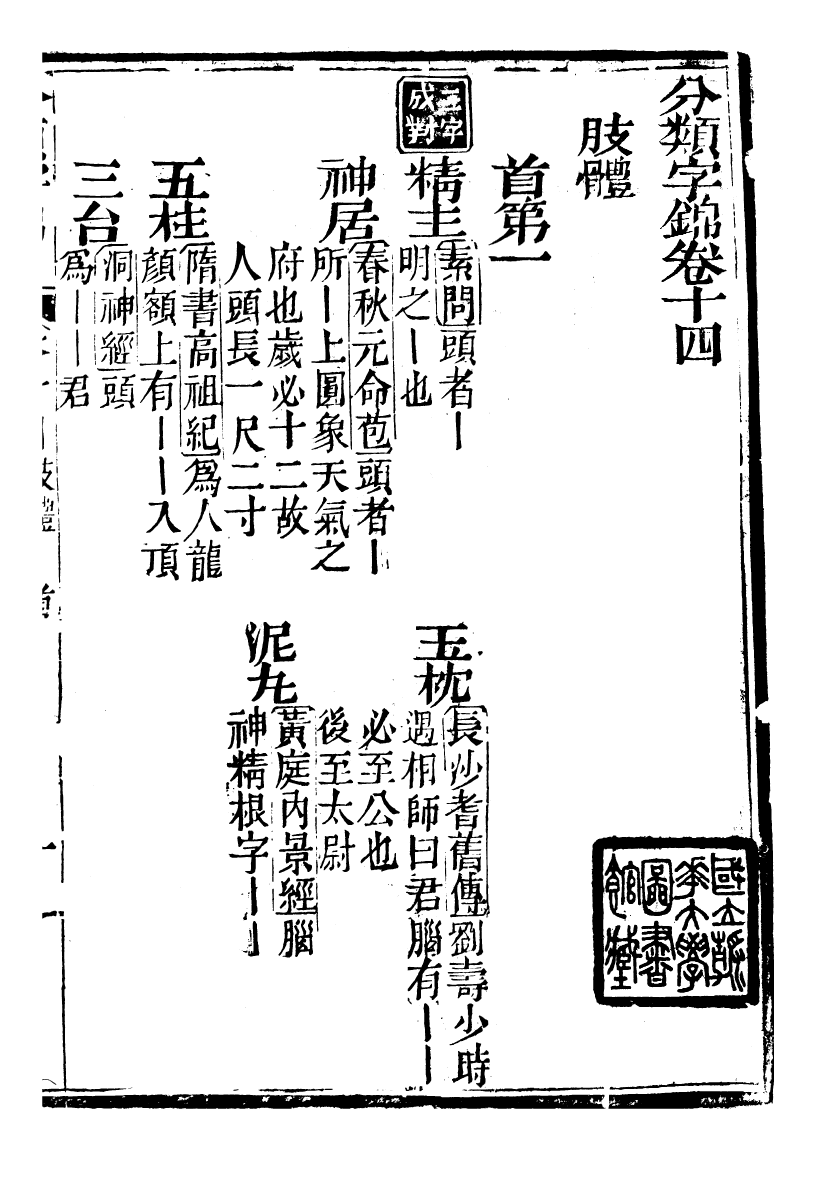 分類字錦卷十四
肢體
首第一
二字
成對
精主
素問頭者丨
明之丨也
玉枕
長沙耆舊傳劉壽少時
遇相師曰君腦有丨丨
必至公也
後至太尉
神居
春秋元命苞頭者丨
所丨上圓象天氣之
府也歲必十二故
人頭長一尺二寸
泥丸
黃庭內景經腦
神精根字丨丨
五柱
隋書高祖紀爲人龍
顏額上有丨丨入頂
三台
洞神經頭
爲丨丨君
國立清
華大學
圖書
館藏